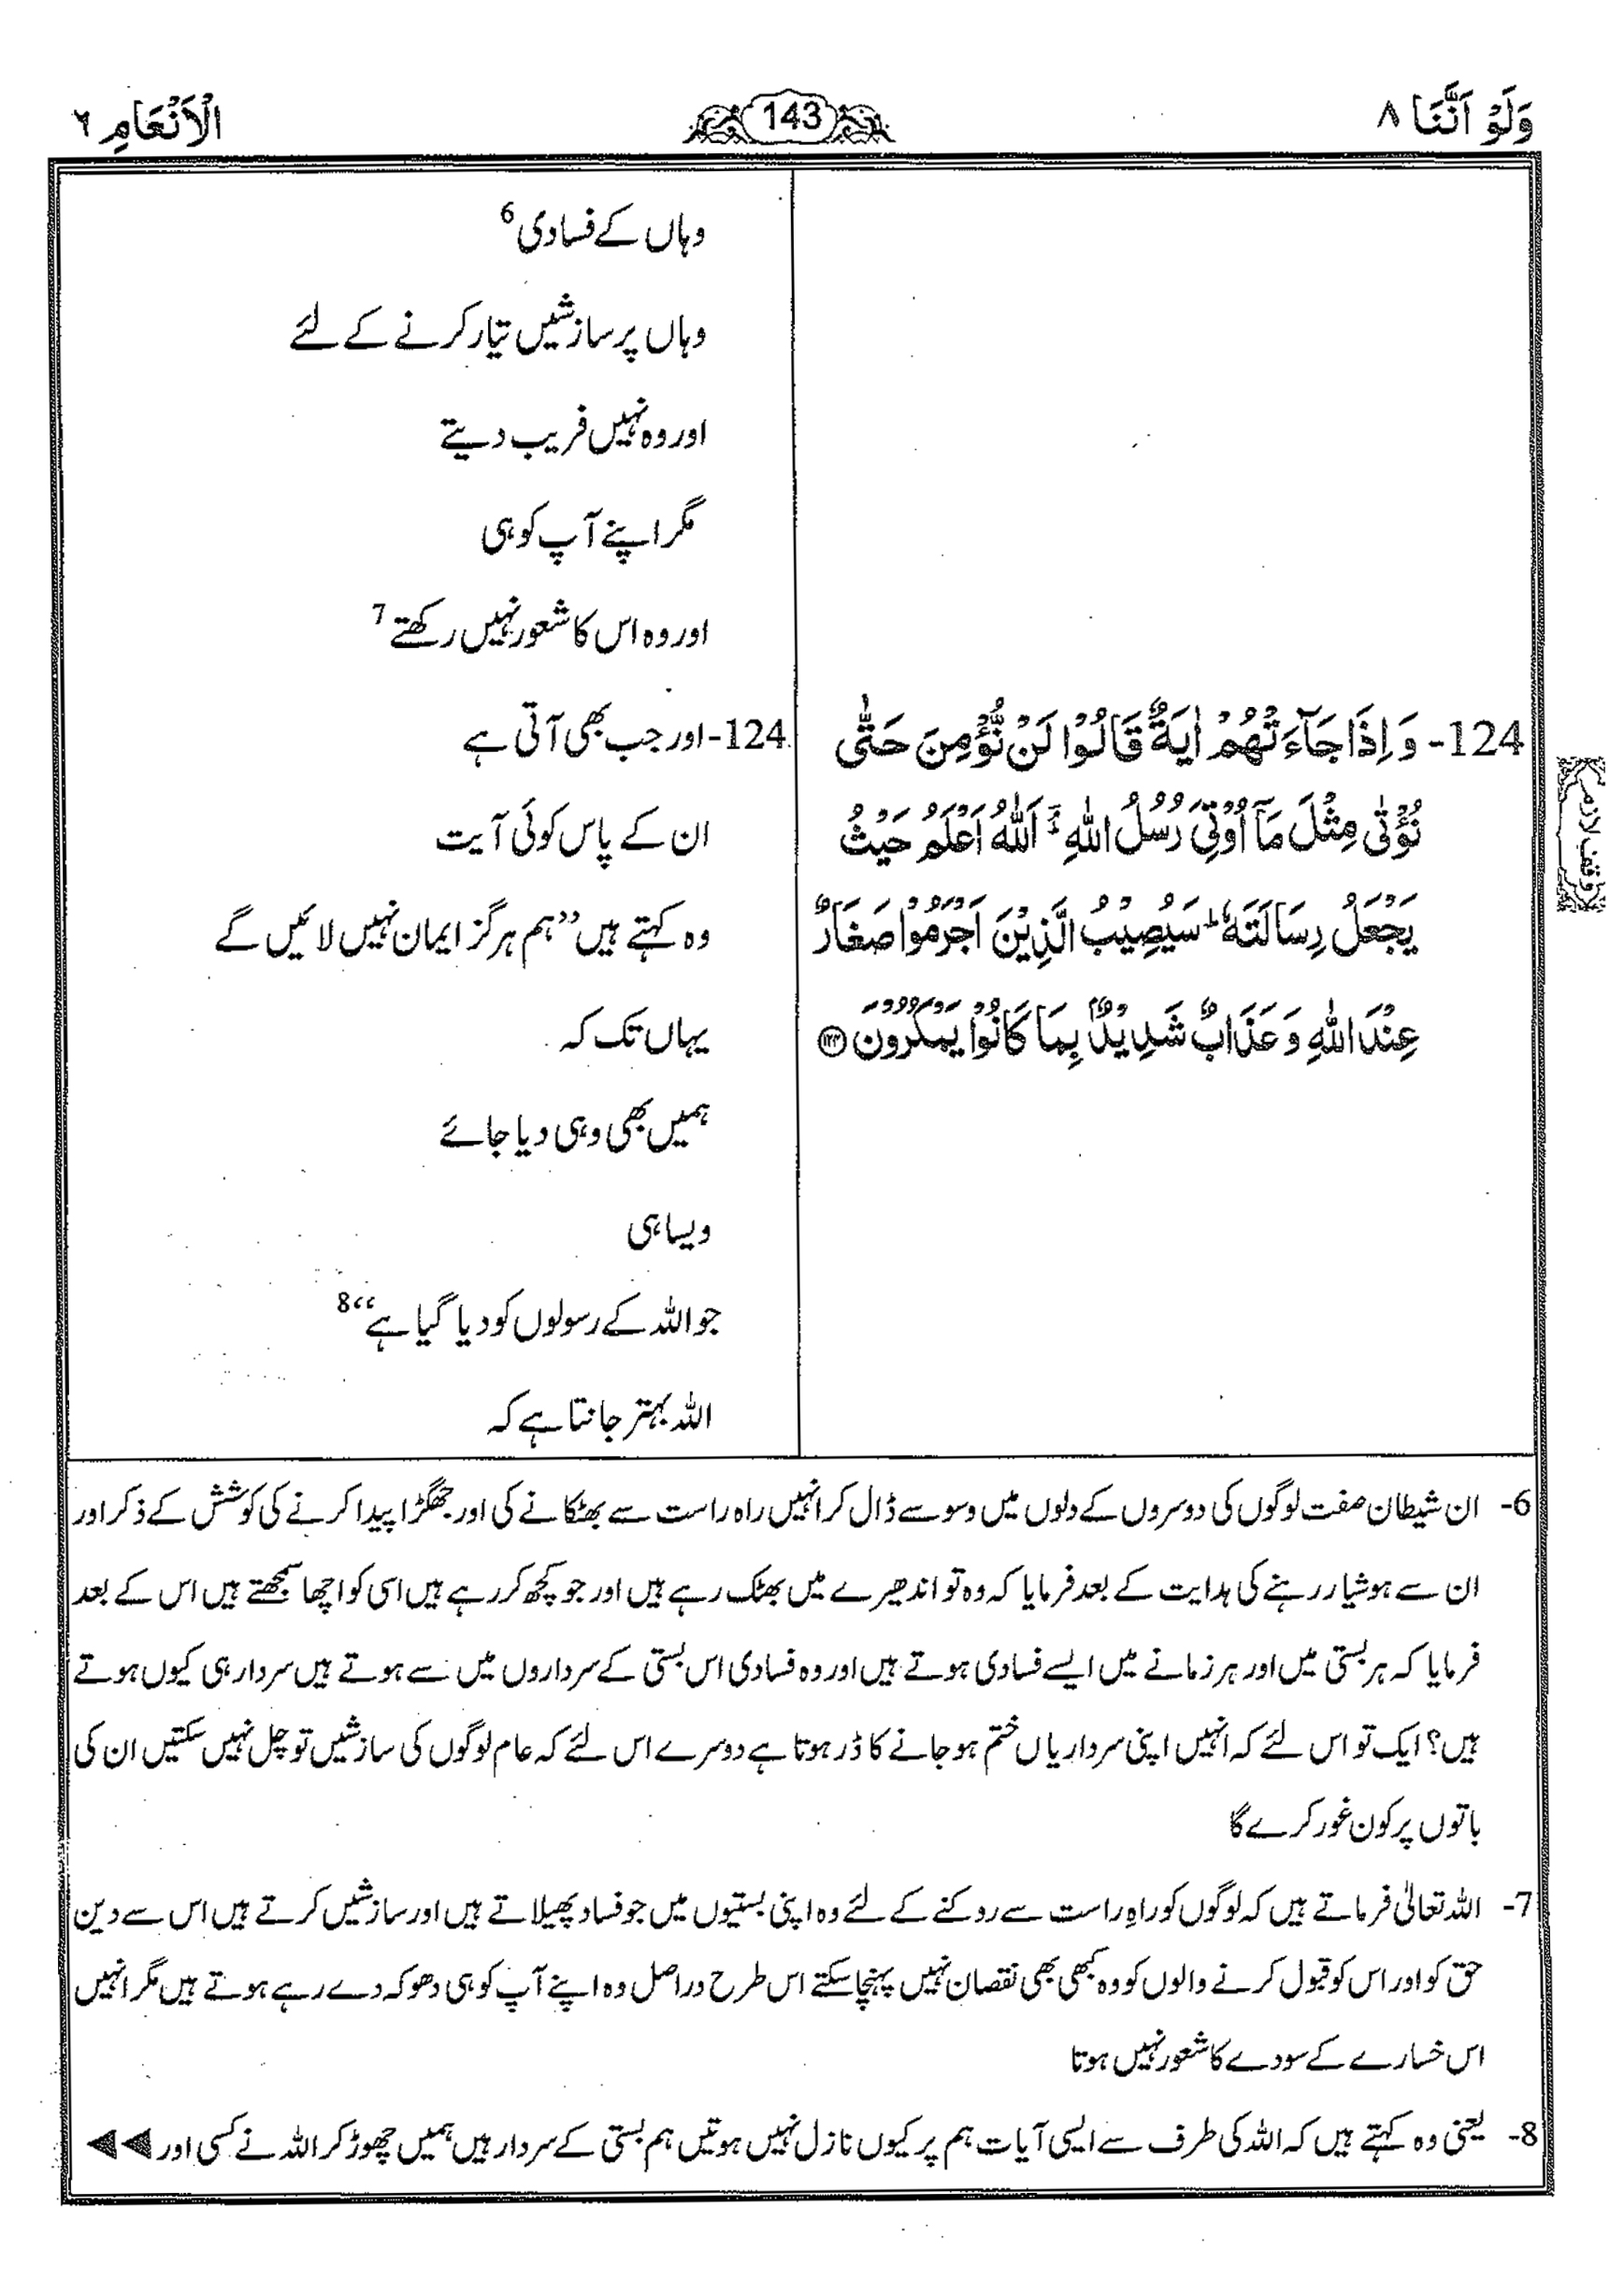 وَلَوْ اَنَّنَا ٨
143
الْاَنْعَامِ ٦
وہاں کے فسادی 6
وہاں پر سازشیں تیار کرنے کے لئے
اور وہ نہیں فریب دیتے
مگر اپنے آپ کو ہی
اور وہ اس کا شعور نہیں رکھتے 7
124- وَ اِذَا جَآءَتْهُمْ اٰيَةٌ قَالُوْا لَنْ نُّؤْمِنَ حَتّٰى
نُؤْتٰى مِثْلَ مَاۤ اُوْتِيَ رُسُلُ اللّٰهِ ۘؔ اَللّٰهُ اَعْلَمُ حَيْثُ
يَجْعَلُ رِسَالَتَهٗ ؕ سَيُصِيْبُ الَّذِيْنَ اَجْرَمُوْا صَغَارٌ
عِنْدَ اللّٰهِ وَ عَذَابٌ شَدِيْدٌۢ بِمَا كَانُوْا يَمْكُرُوْنَ ۝۱۲۴
وقف لازم
124- اور جب بھی آتی ہے
ان کے پاس کوئی آیت
وہ کہتے ہیں ”ہم ہرگز ایمان نہیں لائیں گے
یہاں تک کہ
ہمیں بھی وہی دیا جائے
ویسا ہی
جو اللہ کے رسولوں کو دیا گیا ہے“ 8
اللہ بہتر جانتا ہے کہ
6- ان شیطان صفت لوگوں کی دوسروں کے دلوں میں وسوسے ڈال کر انہیں راہ راست سے بھٹکانے کی اور جھگڑا پیدا کرنے کی کوشش کے ذکر اور
ان سے ہوشیار رہنے کی ہدایت کے بعد فرمایا کہ وہ تو اندھیرے میں بھٹک رہے ہیں اور جو کچھ کر رہے ہیں اسی کو اچھا سمجھتے ہیں اس کے بعد
فرمایا کہ ہر بستی میں اور ہر زمانے میں ایسے فسادی ہوتے ہیں اور وہ فسادی اس بستی کے سرداروں میں سے ہوتے ہیں سردار ہی کیوں ہوتے
ہیں؟ ایک تو اس لئے کہ انہیں اپنی سرداریاں ختم ہو جانے کا ڈر ہوتا ہے دوسرے اس لئے کہ عام لوگوں کی سازشیں تو چل نہیں سکتیں ان کی
باتوں پر کون غور کرے گا
7- اللہ تعالیٰ فرماتے ہیں کہ لوگوں کو راہِ راست سے روکنے کے لئے وہ اپنی بستیوں میں جو فساد پھیلاتے ہیں اور سازشیں کرتے ہیں اس سے دین
حق کو اور اس کو قبول کرنے والوں کو وہ کبھی بھی نقصان نہیں پہنچا سکتے اس طرح دراصل وہ اپنے آپ کو ہی دھوکہ دے رہے ہوتے ہیں مگر انہیں
اس خسارے کے سودے کا شعور نہیں ہوتا
8- یعنی وہ کہتے ہیں کہ اللہ کی طرف سے ایسی آیات ہم پر کیوں نازل نہیں ہوتیں ہم بستی کے سردار ہیں ہمیں چھوڑ کر اللہ نے کسی اور ◀◀